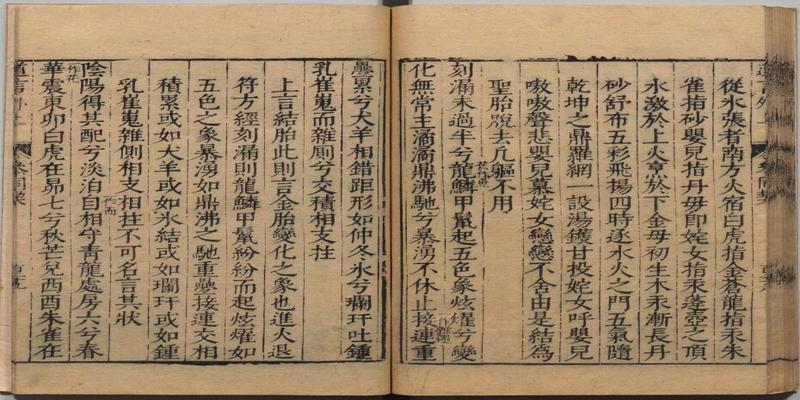 從水張者南方火宿白虎指金蒼龍指汞朱
雀指砂嬰兒指丹毋即姹女指汞蓬壺之頂
水激於上火烹於下金母初生木汞漸長丹
砂舒布五彩飛揚四時逐水火之門五氣隨
乾坤之鼎羅網一設湯鑊甘投姹女呼嬰兒
嗷嗷聲悲嬰兒慕姹女戀戀不舍由是結為
聖胎脫去凡軀不用
刻漏未過半兮龍鱗甲鬣起五色象炫燿兮變
化無常主滴滴鼎沸馳兮暴湧不休止接連重
疊累兮犬羊相錯距形如仲冬氷兮瓓玕吐鍾
乳崔嵬而雜厠兮交積相支拄
上言結胎此則言金胎變化之象也進火退
符方經刻漏則龍鱗甲鬣紛紛而起炫燿如
五色之象暴湧如鼎沸之馳重疊接連交相
積累或如犬羊或如氷結或如瓓玕或如鍾
乳崔嵬雜側相支拄不可名言其狀
陰陽得其配兮淡泊自相守青龍處房六兮春
華震東卯白虎在昴七兮秋芒兌西酉朱雀在